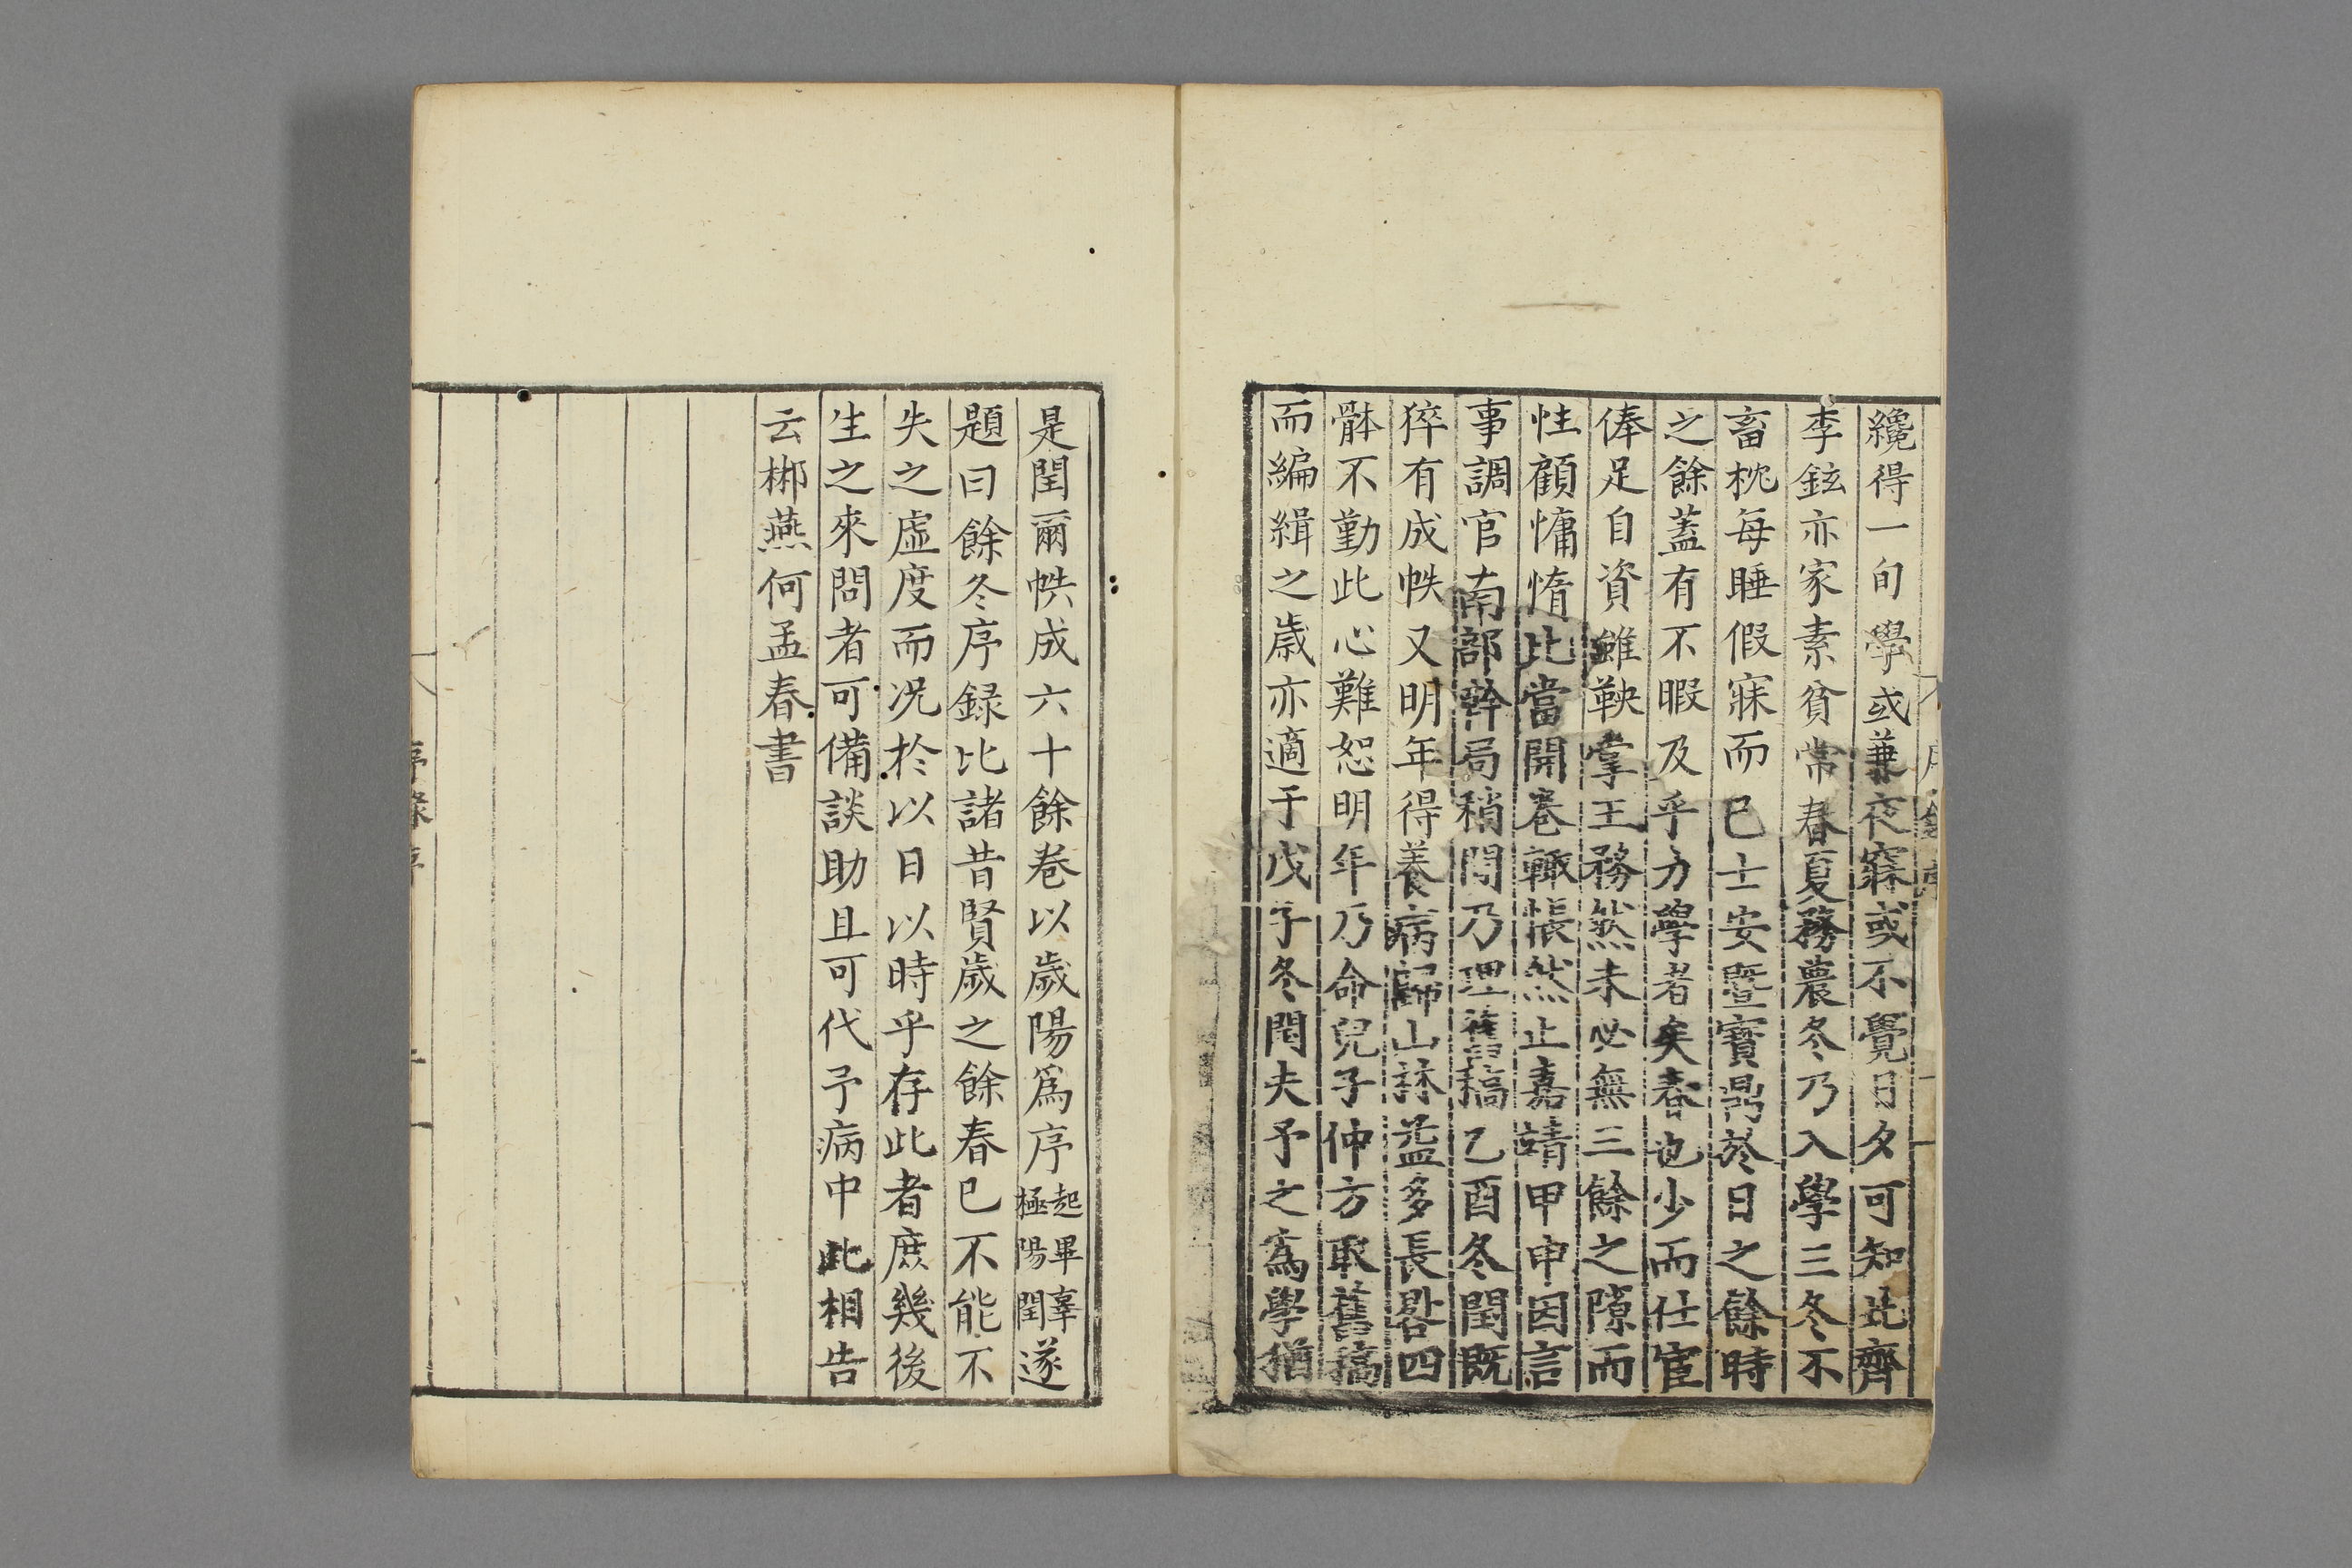 纔得一旬學或兼夜寐或不覺日夕可知此齊
李鉉亦家素貧常春夏務農冬乃入學三冬不
畜枕每睡假寐而已士安暨寶鼎於日之餘時
之餘蓋有不暇及乎力學者矣春也少而仕宦
俸足自資雖鞅掌王務然未必無三餘之隙而
性顧慵惰比當開卷輙悵然止嘉靖甲申因言
事調官南部幹局稍閒乃理舊稿乙酉冬閏既
猝有成帙又明年得養病歸山林益多長畧四
骵不勤此心難恕明年乃命兒子仲方取舊稿
而編緝之歲亦適于戊子冬閏夫予之爲學猶
是閏爾帙成六十餘卷以歲陽爲序起畢辜極陽閏遂
題曰餘冬序録比諸昔賢歲之餘春已不能不
失之虛度而况於以日以時乎存此者庶幾後
生之來問者可備談助且可代予病中此相告
云郴燕何孟春書